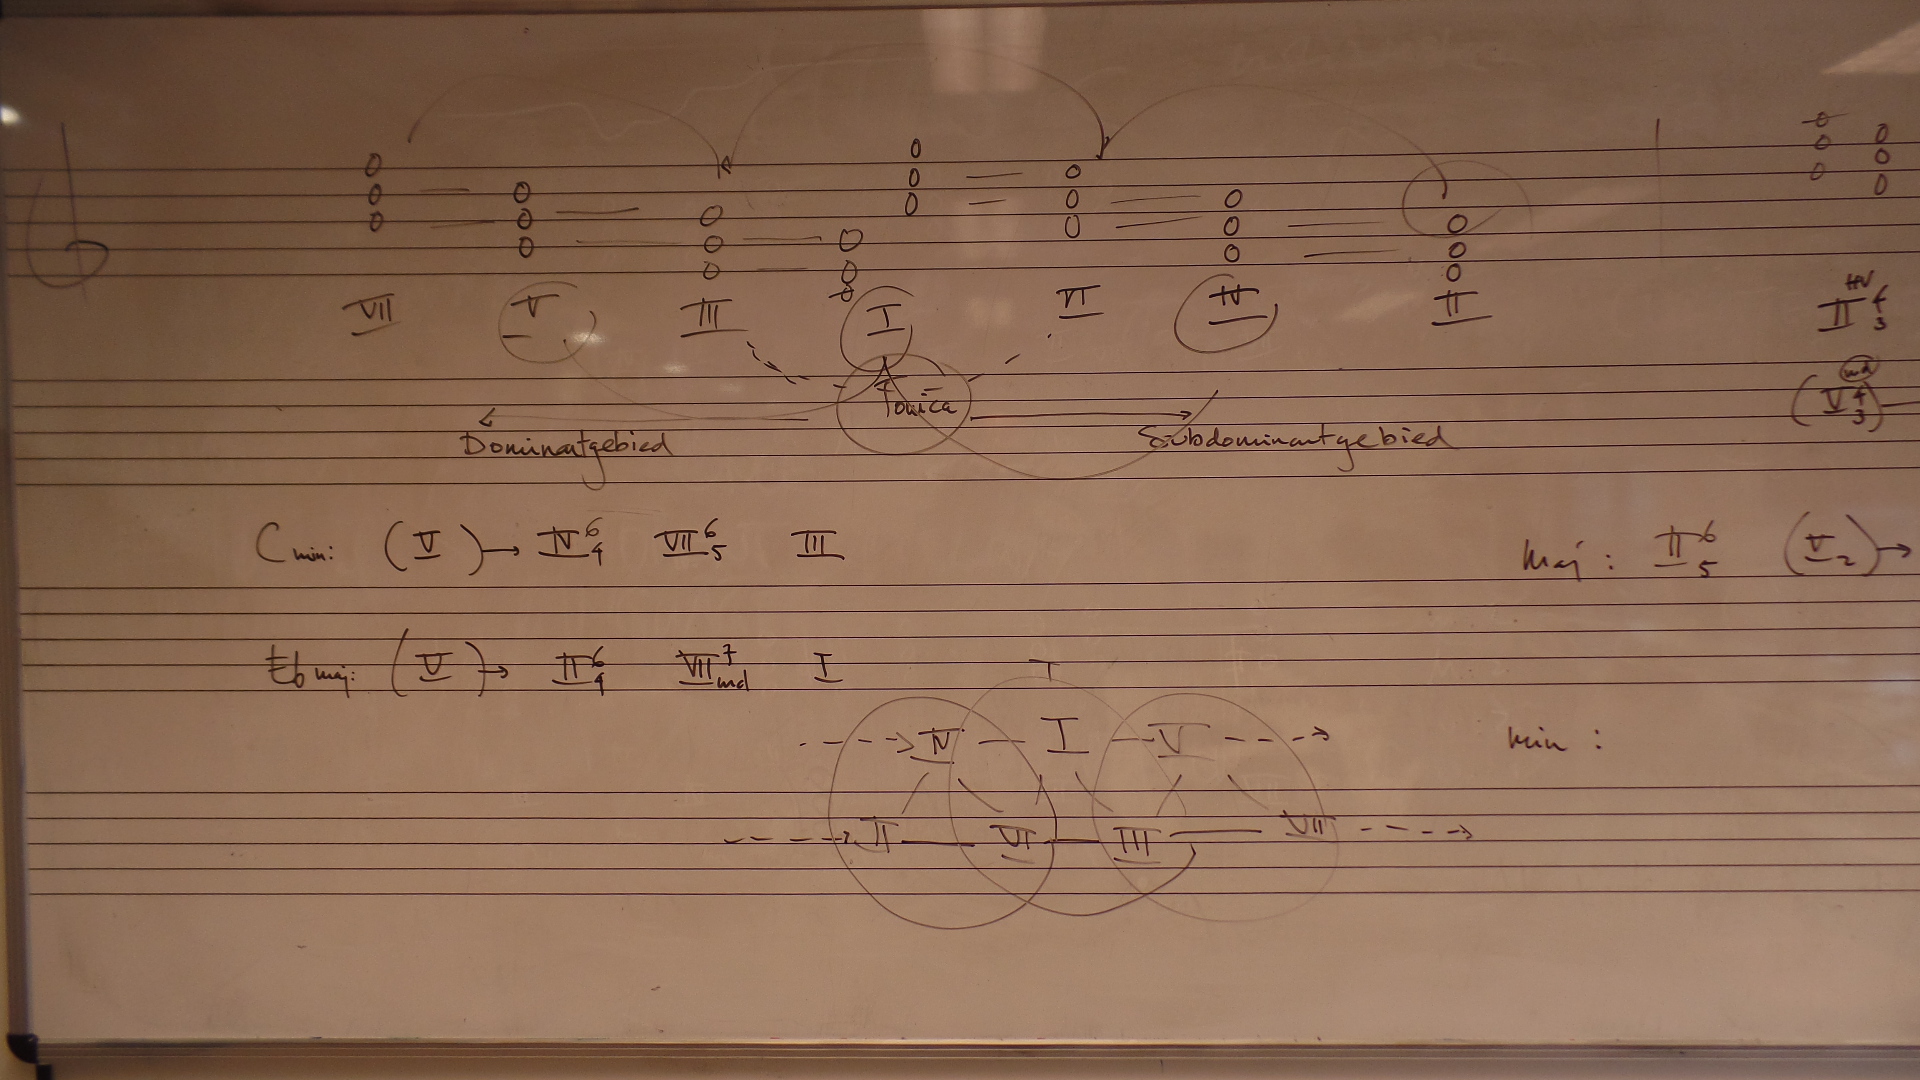 VII V III I VI IV II HV II 4 3
Tonica (V 4 3 md)
Dominantgebied Subdominantgebied
Cmin: (V) → IV 6 4 VII 6 5 III maj: II 6 5 (V 2) →
Eb maj: (V) → II 6 4 VII 7 md I
T
IV — I — V min:
II — VI — III — VII